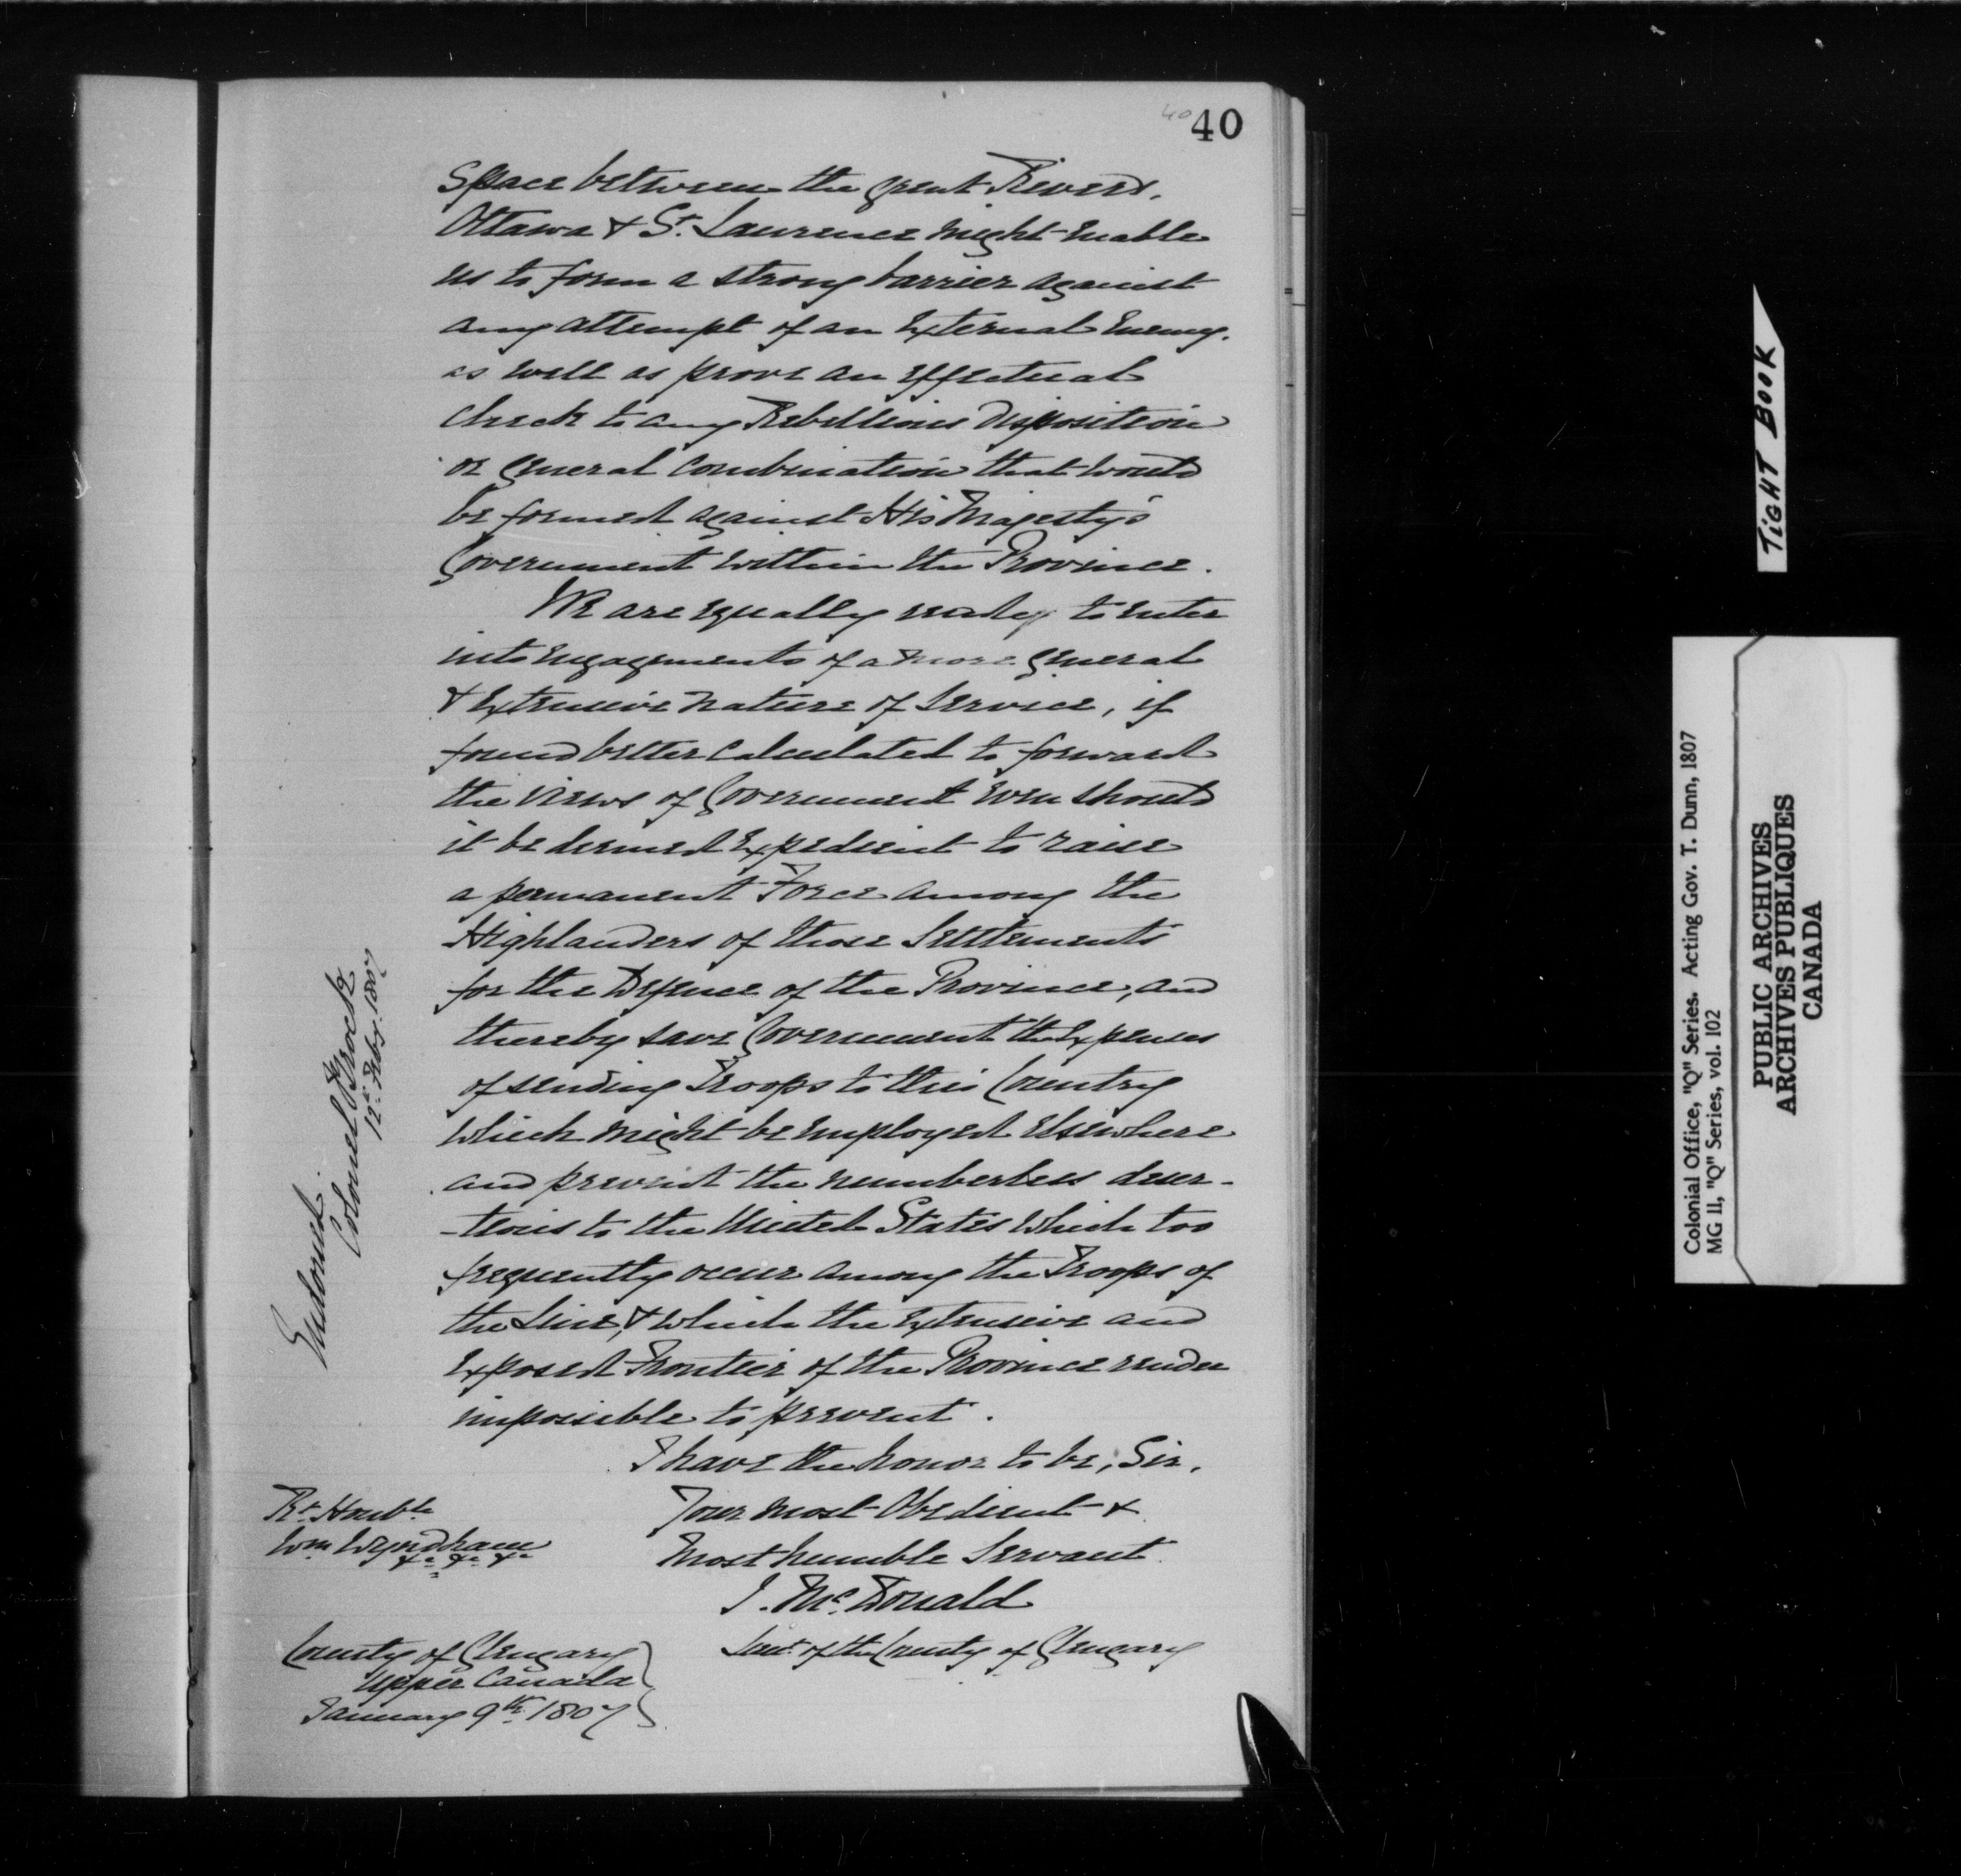 40
40
Space between the great Rivers,
Ottawa & St. Laurence might enable
us to form a strong barrier against
any attempt of an External Enemy.
as well as prove an effectual
check to any Rebellious disposition
or general combination that would
be formed against His Majesty's
Government within the Province.
We are equally ready to enter
into engagements of a more general
& Extensive nature of Service, if
found better calculated to forward
the views of Government even should
it be deemed Expedient to raise
a permanent Force among the
Highlanders of those Settlements
for the Defence of the Province, and
thereby save Government the Expenses
of sending Troops to this Country
which might be employed Elsewhere
and prevent the numberless deser-
-tions to the United States which too
frequently occur among the Troops of
the Line, & which the Extensive and
Exposed Frontier of the Province render
impossible to prevent.
I have the honor to be, Sir,
Your most Obedient &
Most humble Servant
J. McDonald
Lieut. of the County of Glengary
Rt. Honble
Wm Wyndham
&c &c &c
County of Glengary
Upper Canada
January 9th 1807
Endorsed.
Colonel Brock
12th Feby. 1807
TiGHT BOOK
Colonial Office, "Q" Series. Acting Gov. T. Dunn, 1807
MG 11, "Q" Series, vol. 102
PUBLIC ARCHIVES
ARCHIVES PUBLIQUES
CANADA